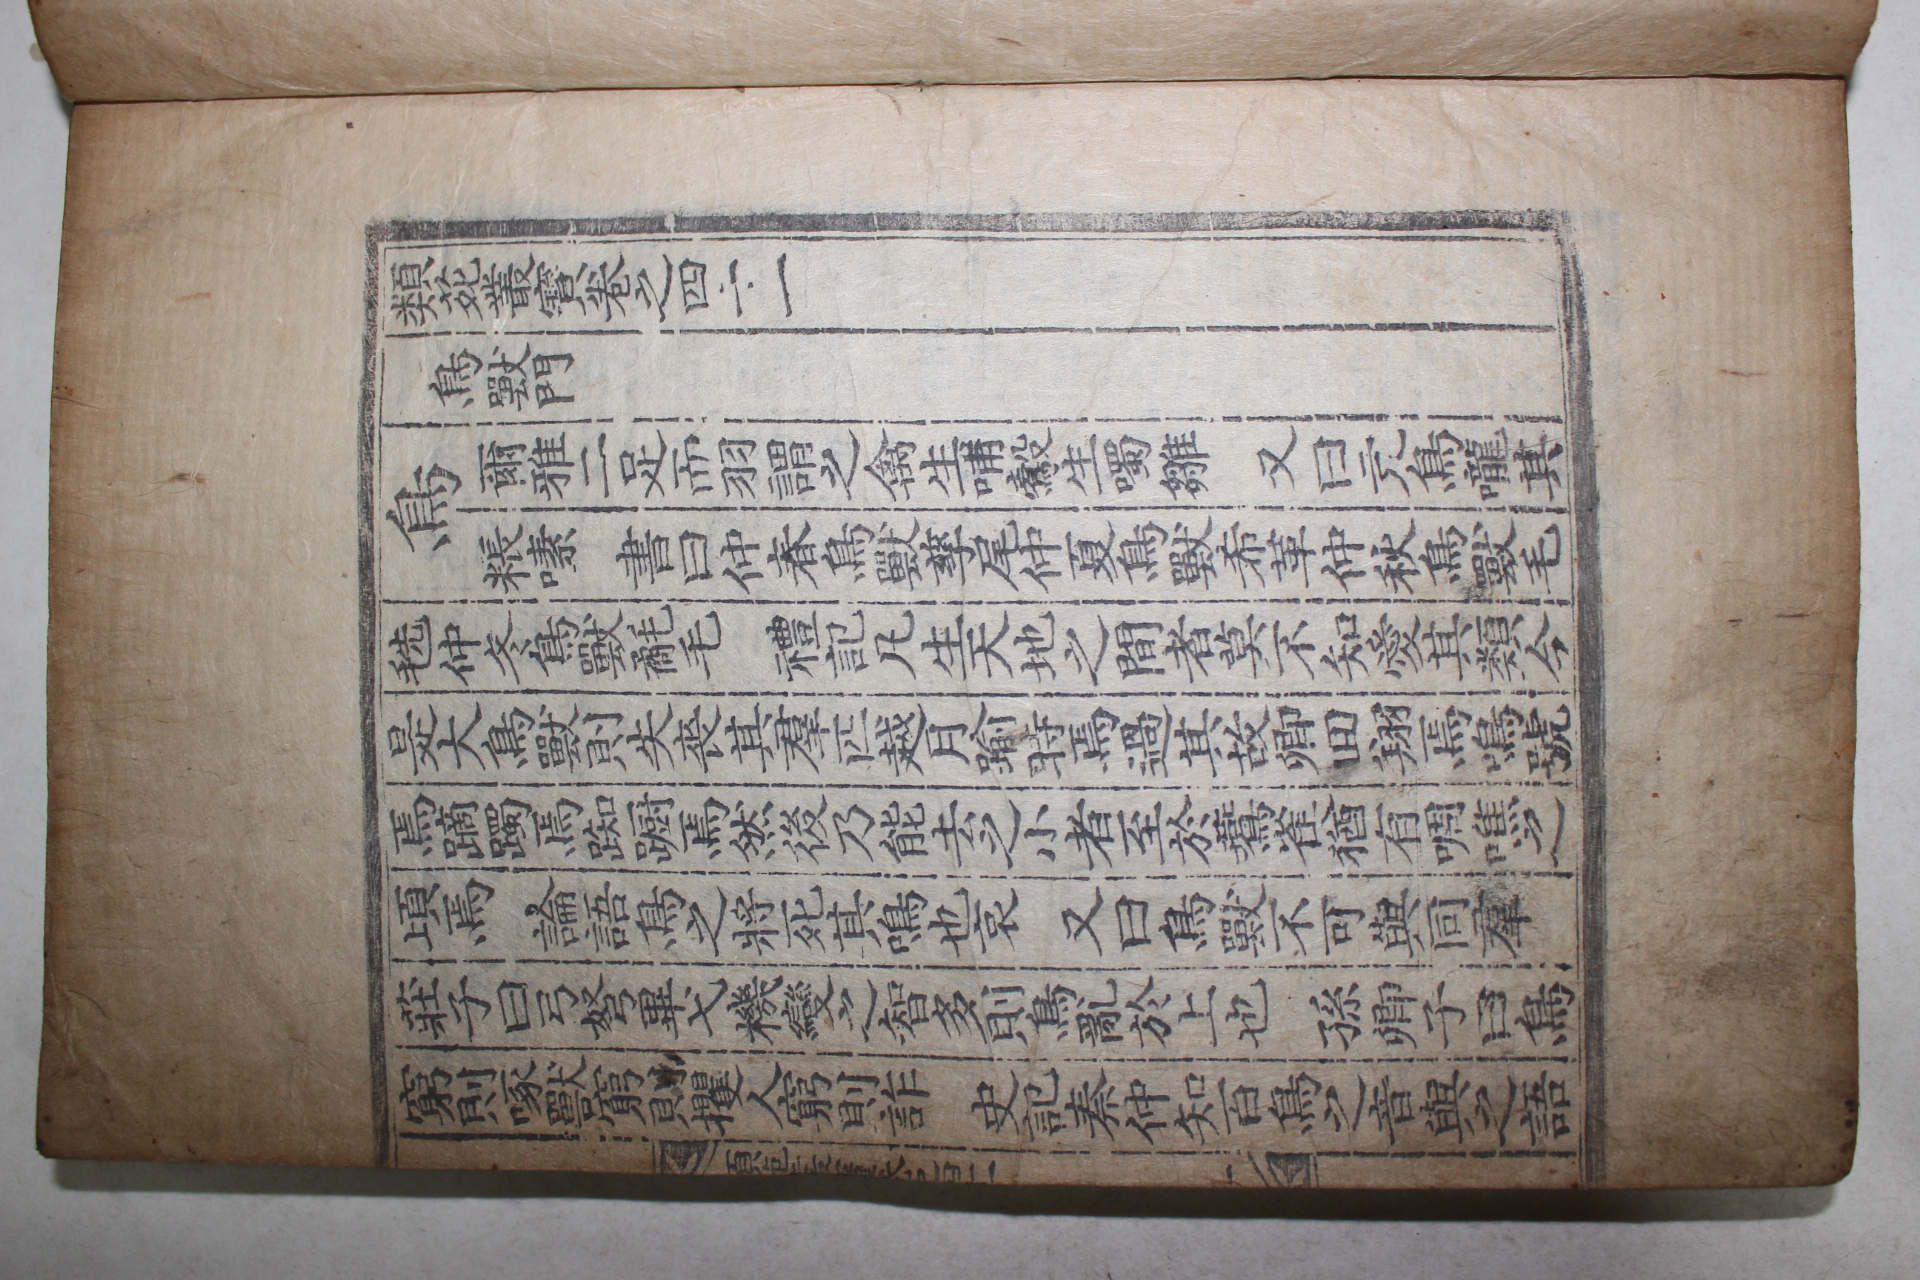 類苑叢寶卷之四十一
鳥獸門
鳥 爾雅二足而羽謂之禽生哺鷇生噣雛 又曰亢鳥嚨其
粻嗉 書曰仲春鳥獸孶尾仲夏鳥獸希革仲秋鳥獸毛
毨仲冬鳥獸氄毛 禮記凡生天地之間者莫不知愛其類今
是大鳥獸則失喪其羣匹越月踰時焉過其故鄕回翔焉鳴號
焉蹄躅焉踟躕焉然後乃能去之小者至於鷰雀猶有啁噍之
頃焉 論語鳥之將死其鳴也哀 又曰鳥獸不可與同羣
莊子曰弓弩畢弋機變之智多則鳥亂於上也 孫卿子曰鳥
窮則啄獸窮則攫人窮則詐 史記秦仲知百鳥之音與之語